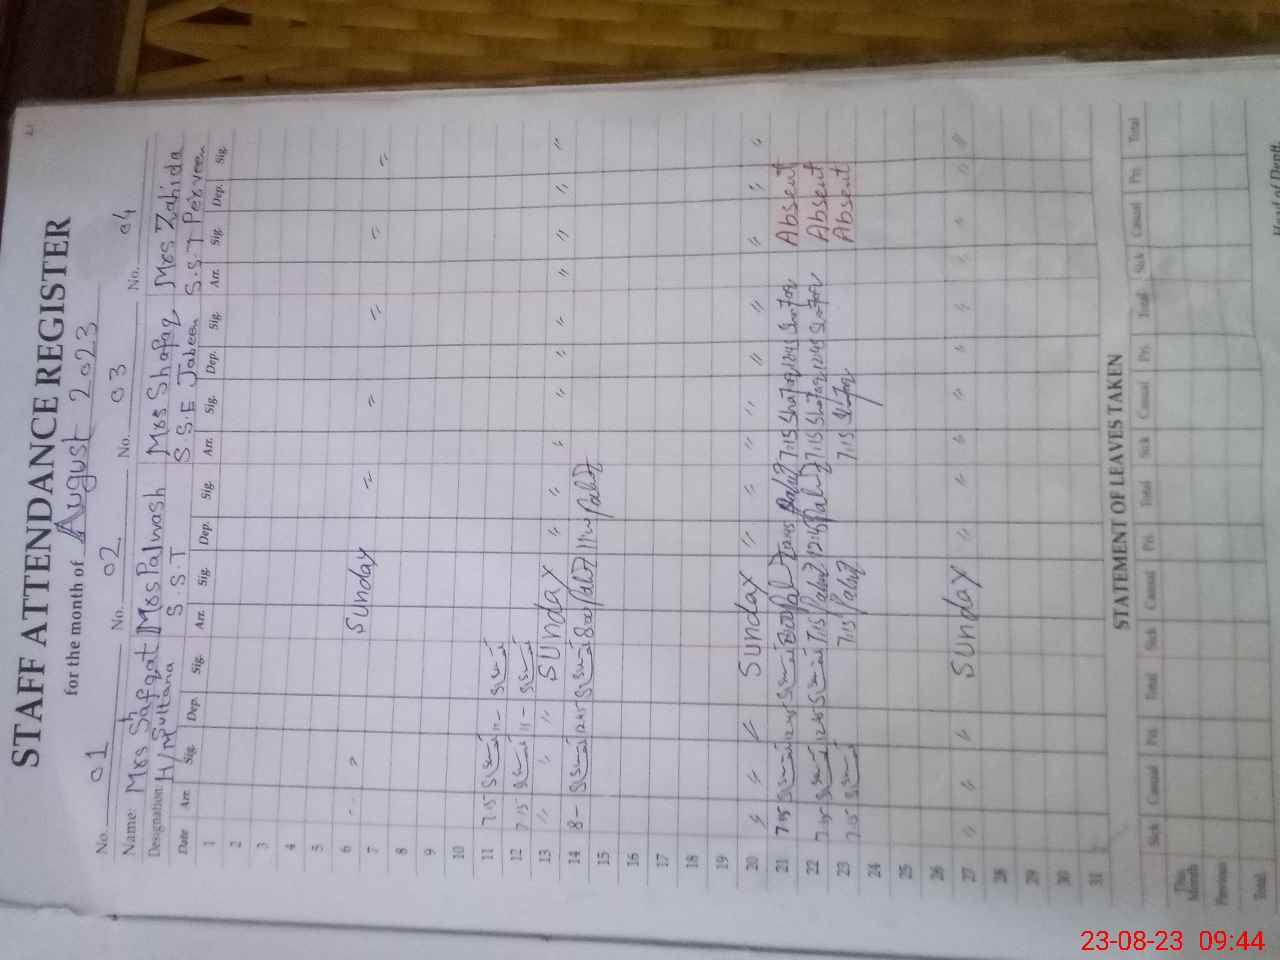 STAFF ATTENDANCE REGISTER
for the month of August 2023
No. 01 No. 02 No. 03 No. 04
Name: Mrs Shafqat Sultana Mrs Palwash Mrs Shafaq Jabeen Mrs Zahida Perveen
Designation: H/M S.S.T S.S.E S.S.T
Date Arr. Sig. Dep. Sig. Arr. Sig. Dep. Sig. Arr. Sig. Dep. Sig. Arr. Sig. Dep. Sig.
1
2
3
4
5
6 Sunday
7
8
9
10
11 7:15 11-
12 7:15 11-
13 〃 〃 〃 Sunday 〃 〃 〃 〃 〃 〃 〃 〃 〃 〃
14 8- 12:45 8:00 11:00
15
16
17
18
19
20 〃 〃 〃 Sunday 〃 〃 〃 〃 〃 〃 〃 〃 〃
21 7:15 12:45 8:00 12:45 7:15 Shafaq 12:45 Shafaq Absent
22 7:15 12:45 7:15 12:45 7:15 Shafaq 12:45 Shafaq Absent
23 7:15 7:15 7:15 Shafaq Absent
24
25
26
27 〃 〃 〃 Sunday 〃 〃 〃 〃 〃 〃 〃 〃 〃 〃
28
29
30
31
STATEMENT OF LEAVES TAKEN
Sick Casual Pri. Total Sick Casual Pri. Total Sick Casual Pri. Total Sick Casual Pri. Total
This Month
Previous
Total
Head of Deptt.
23-08-23 09:44